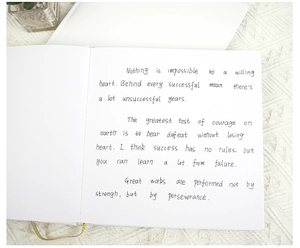 Nothing is impossible to a willing
heart. Behind every successful man there's
a lot unsuccessful years.
The greatest test of courage on
earth is to bear defeat without losing
heart. I think success has no rules, but
you can learn a lot from failure.
Great works are performed not by
strength, but by perseverance.